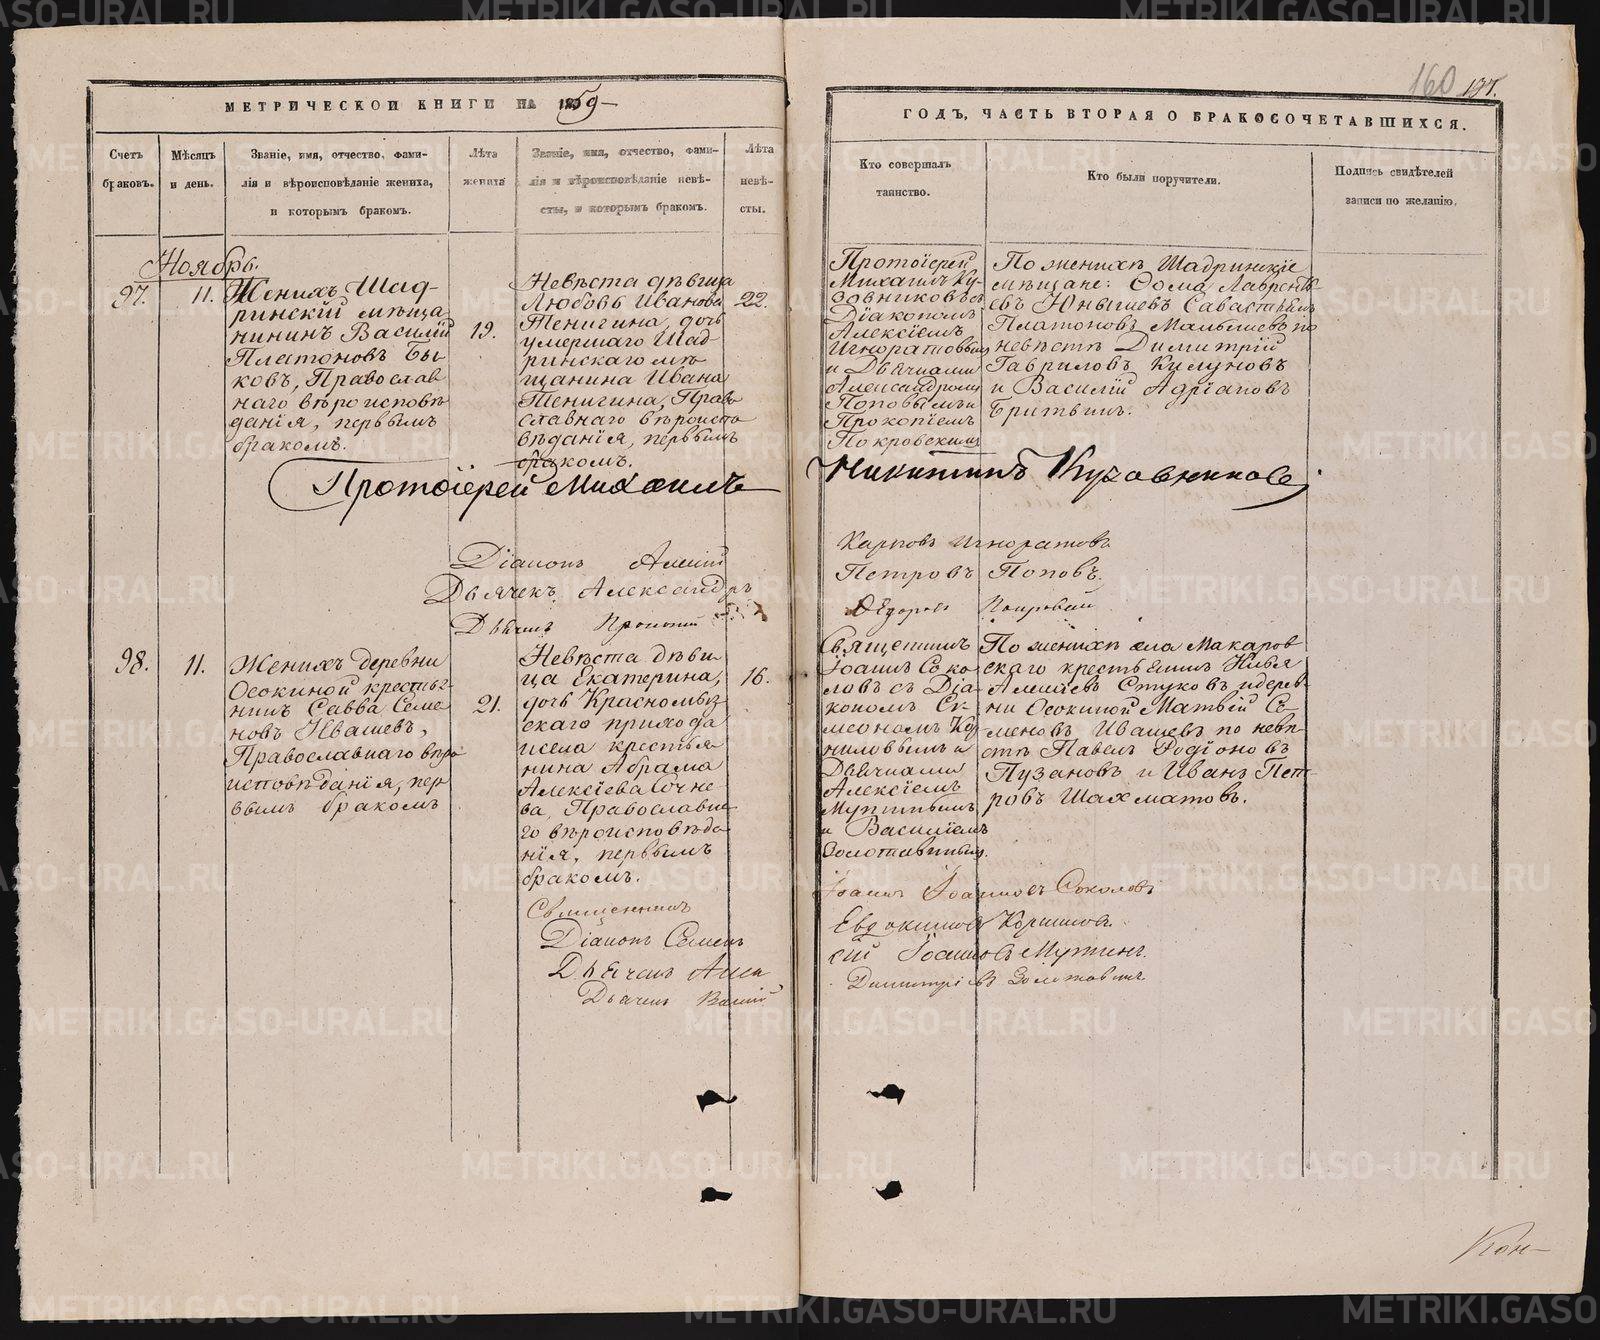 МЕТРИЧЕСКОЙ КНИГИ НА 1859
ГОДЪ, ЧАСТЬ ВТОРАЯ О БРАКОСОЧЕТАВШИХСЯ.
160
Счетъ браковъ.
Мѣсяцъ и день.
Званіе, имя, отчество, фами-
лія и вѣроисповѣданіе жениха,
и которымъ бракомъ.
Лѣта
жениха
Званіе, имя, отчество, фами-
лія и вѣроисповѣданіе невѣ-
сты, и которымъ бракомъ.
Лѣта
невѣ-
сты.
Кто совершалъ
таинство.
Кто были поручители.
Подпись свидѣтелей
записи по желанію.
Ноябрь.
97.
11.
Женихъ Шад-
ринскій мѣща
нинъ Василій
Платоновъ Бы-
ковъ, Православ
наго вѣроисповѣ
данія, первымъ
бракомъ.
19.
Невѣста дѣвица
Любовь Иванова
Тенигина, дочь
умершаго Шад-
ринскаго мѣ-
щанина Ивана
Тенигина, Право
славнаго вѣроиспо
вѣданія, первымъ
бракомъ.
22.
Протоіерей
Михаилъ Ку-
Діакономъ
Алексіемъ
Игноратовымъ
и Дьячками
Александромъ
Поповымъ и
Прокопіемъ
Покровскимъ
По женихѣ Шадринскіе
мѣщане: Ѳома Лавренть
евъ Юнышевъ Савастьянъ
Платоновъ Малышевъ по
невѣстѣ Димитрій
Гавриловъ
и Василій Адріановъ
Бритвинъ.
Протоіерей Михаилъ
Никитинъ
Діаконъ
Карповъ Игноратовъ
Дьячекъ Александръ
Петровъ Поповъ.
Дьячекъ
98.
11.
Женихъ деревни
Осокиной крестья-
нинъ Савва Семе
новъ Ивашевъ,
Православнаго вѣро
исповѣданія, пер
вымъ бракомъ
21.
Невѣста дѣви
ца Екатерина,
дочь Красномыс
скаго прихода
и села крестья
нина Абрама
Алексіева Сочне
ва, Православна
го вѣроисповѣда
нія, первымъ
бракомъ.
16.
Священникъ
Іоаннъ Соко
ловъ съ Діа
кономъ Си-
меономъ
и
Дьячками
Алексіемъ
и Василіемъ
Золотавинымъ.
По женихѣ села Макаров
скаго крестьянинъ Илья
Алексіевъ Стуковъ и дерев
ни Осокиной Матвій Се
меновъ Ивашевъ по невѣ
стѣ Павелъ Родіоновъ
Пузановъ и Иванъ Пет-
ровъ Шахматовъ.
Священникъ
Іоаннъ Іоанновъ Соколовъ
Діаконъ Семенъ
Евдокимовъ
Дьячекъ
сій Іоанновъ Мутинъ.
Дьячекъ
Димитріевъ Золотавинъ
Кон-
METRIKI.GASO-URAL.RU